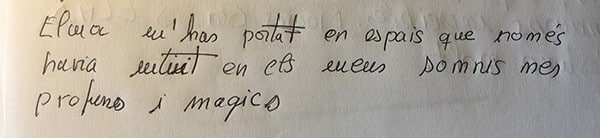 Elma m'has portat en espais que només
havia intuit en els meus somnis mes
profuns i magics